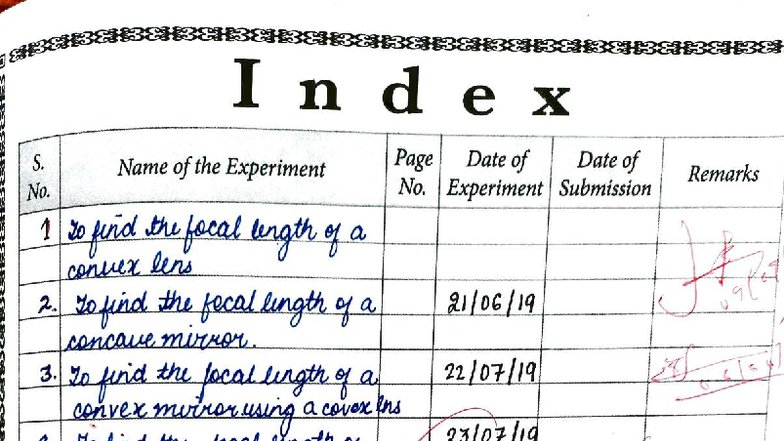 Index
S. No. Name of the Experiment Page No. Date of Experiment Date of Submission Remarks
1 To find the focal length of a
convex lens
2. To find the focal length of a 21/06/19
concave mirror.
3. To find the focal length of a 22/07/19
convex mirror using a covex lns
To find the focal length of 23/07/19